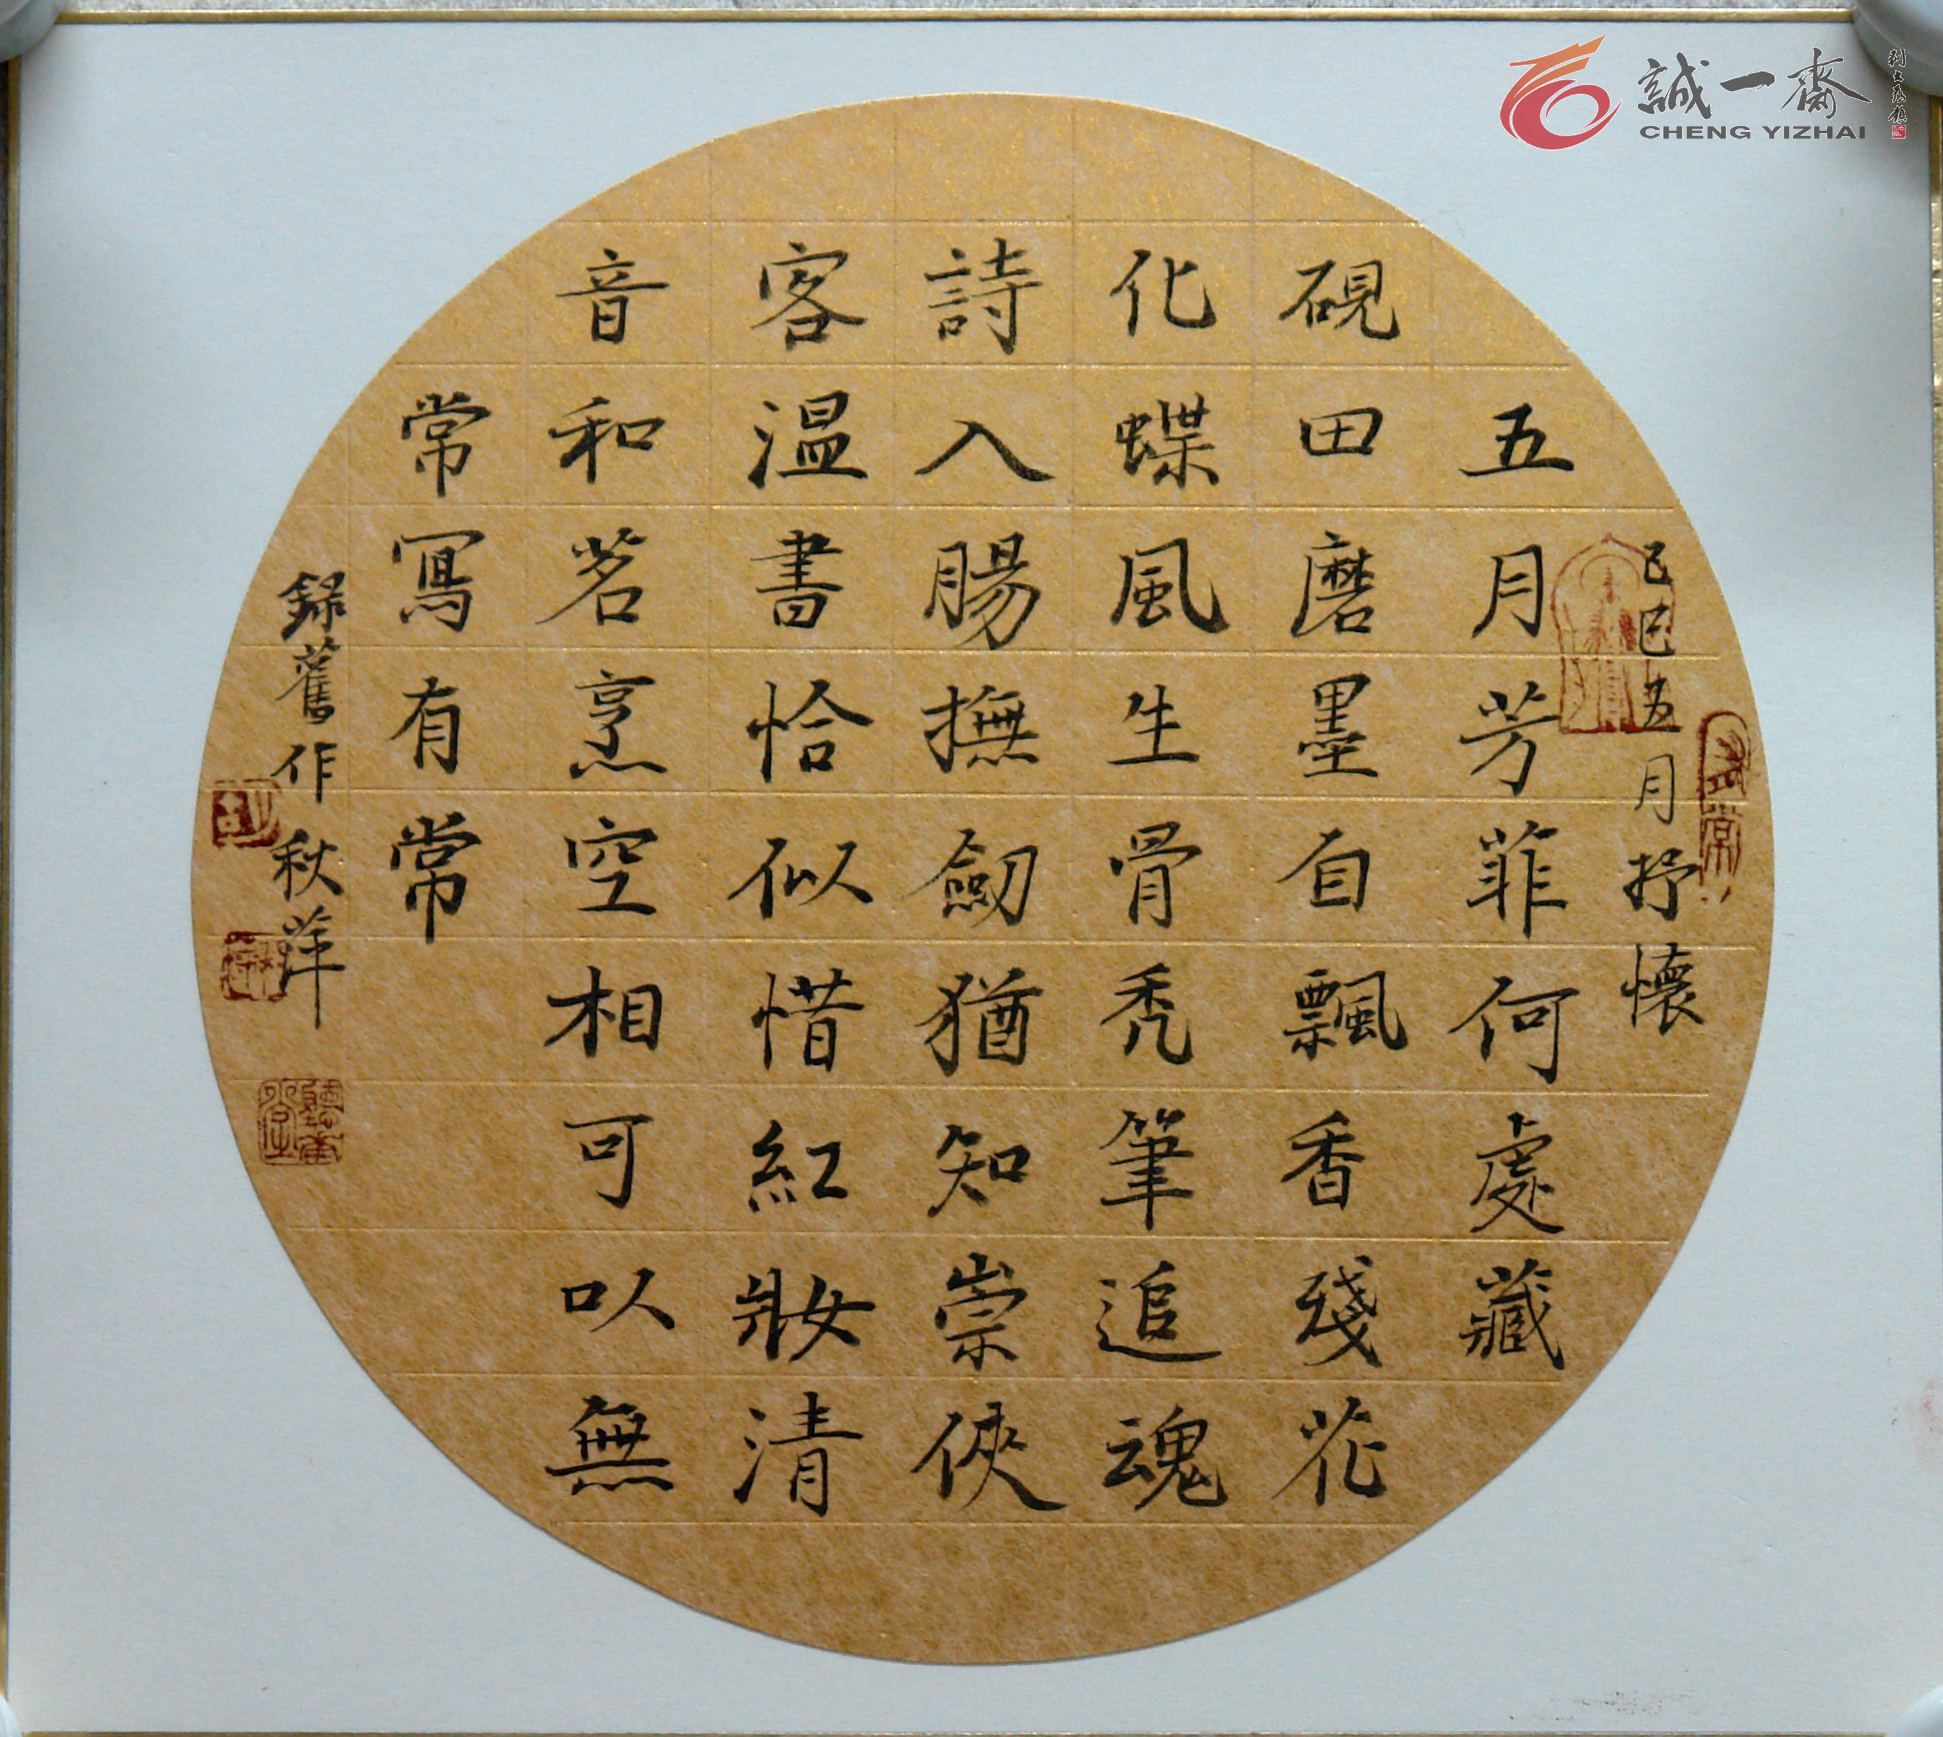 己巳五月抒懷
五月芳菲何處藏
硯田磨墨自飄香殘花
化蝶風生骨禿筆追魂
詩入腸撫劒猶知崇俠
客溫書恰似惜紅妝清
音和茗烹空相可以無
常寫有常
録舊作秋洋
誠一齋
CHENG YIZHAI